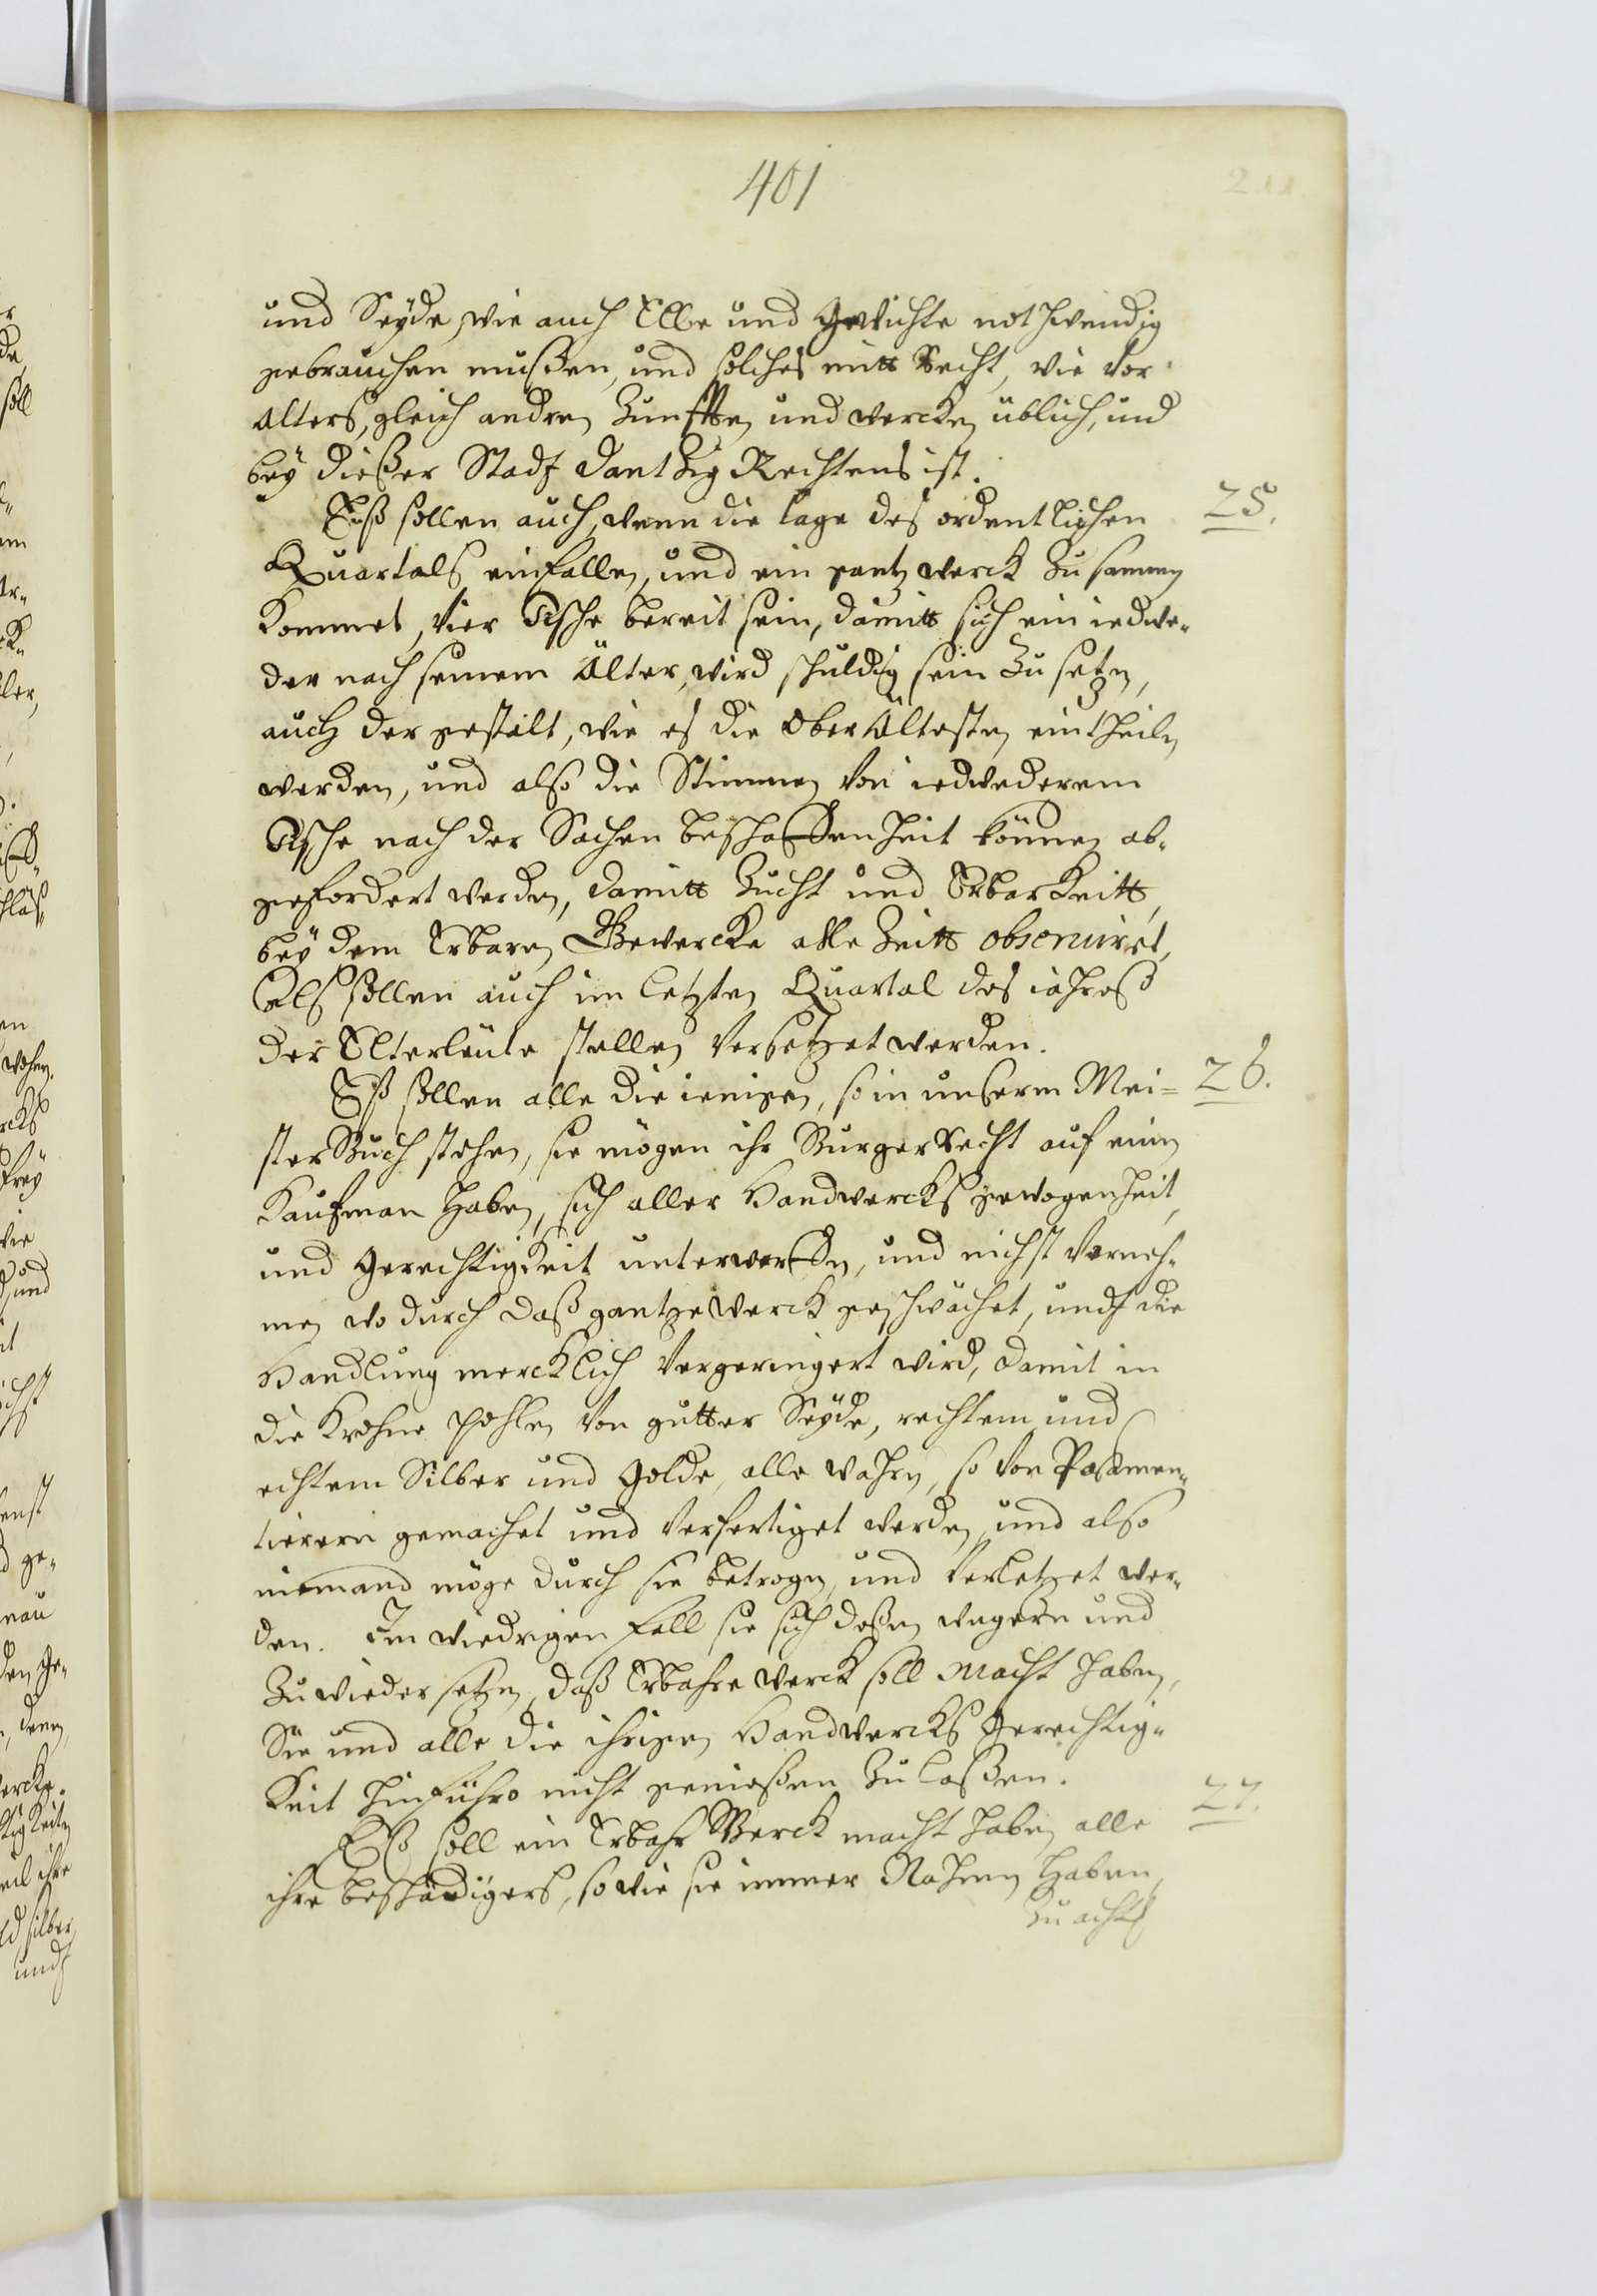 401
211
und Seyde, wie auch Elle und Gewichte nothwendig
gebrauchen mußen, und solches mitt Recht, wie vor
alters, gleich andren Zunfften und wercken üblich, und
bey dießer Stadt Dantzig Rechtens ist.
25.
Eß sollen auch, wenn die tage des ordentlichen
Quartals einfallen, und ein gantz werck zusammen
kommet, vier Tische bereit sein, damitt sich ein iedwe-
der nach seinem Älter, wird schuldig sein zu setzen,
auch der gestalt, wie es die Ober Ältesten eintheilen
werden, und also die Stimmen von iedwederem
Tische nach der Sachen beschaffenheit können ab-
gefordert werden, damitt Zucht und Erbarkeitt,
bey dem Erbaren Gewercke alle Zeitt observiret,
Alß sollen auch im letzten Quartal des iahreß
der Elterleute stellen versetzet werden.
26.
Eß sollen alle die ienigen, so in unserm Mei=
ster Buch stehen, sie mögen ihr Burger Recht auf einen
Kaufman haben, sich aller Handwercks gewogenheit,
und Gerechtigkeit unterwerffen, und nichst verneh-
men wo durch daß gantze werck geschwächet, und die
Handlung mercklich vergeringert wird, damit in
die Krohne Pohlen von gutter Seyde, rechtem und
echtem Silber und Golde, alle wahren, so von Posamen-
tierern gemachet und verfertiget werden, und also
niemand möge durch sie betrogen, und verletzet wer-
den. Im wiedrigen fall sie sich deßen wegern und
zuwieder setzen, daß Erbahre werck soll macht haben,
Sie und alle die ihrigen Handwercks Gerechtig-
keit hinführo nicht genießen zu laßen.
27.
Eß soll ein Erbahr Werck macht haben alle
ihre beschädigers, so wie sie immer Nahmen haben,
zu acht